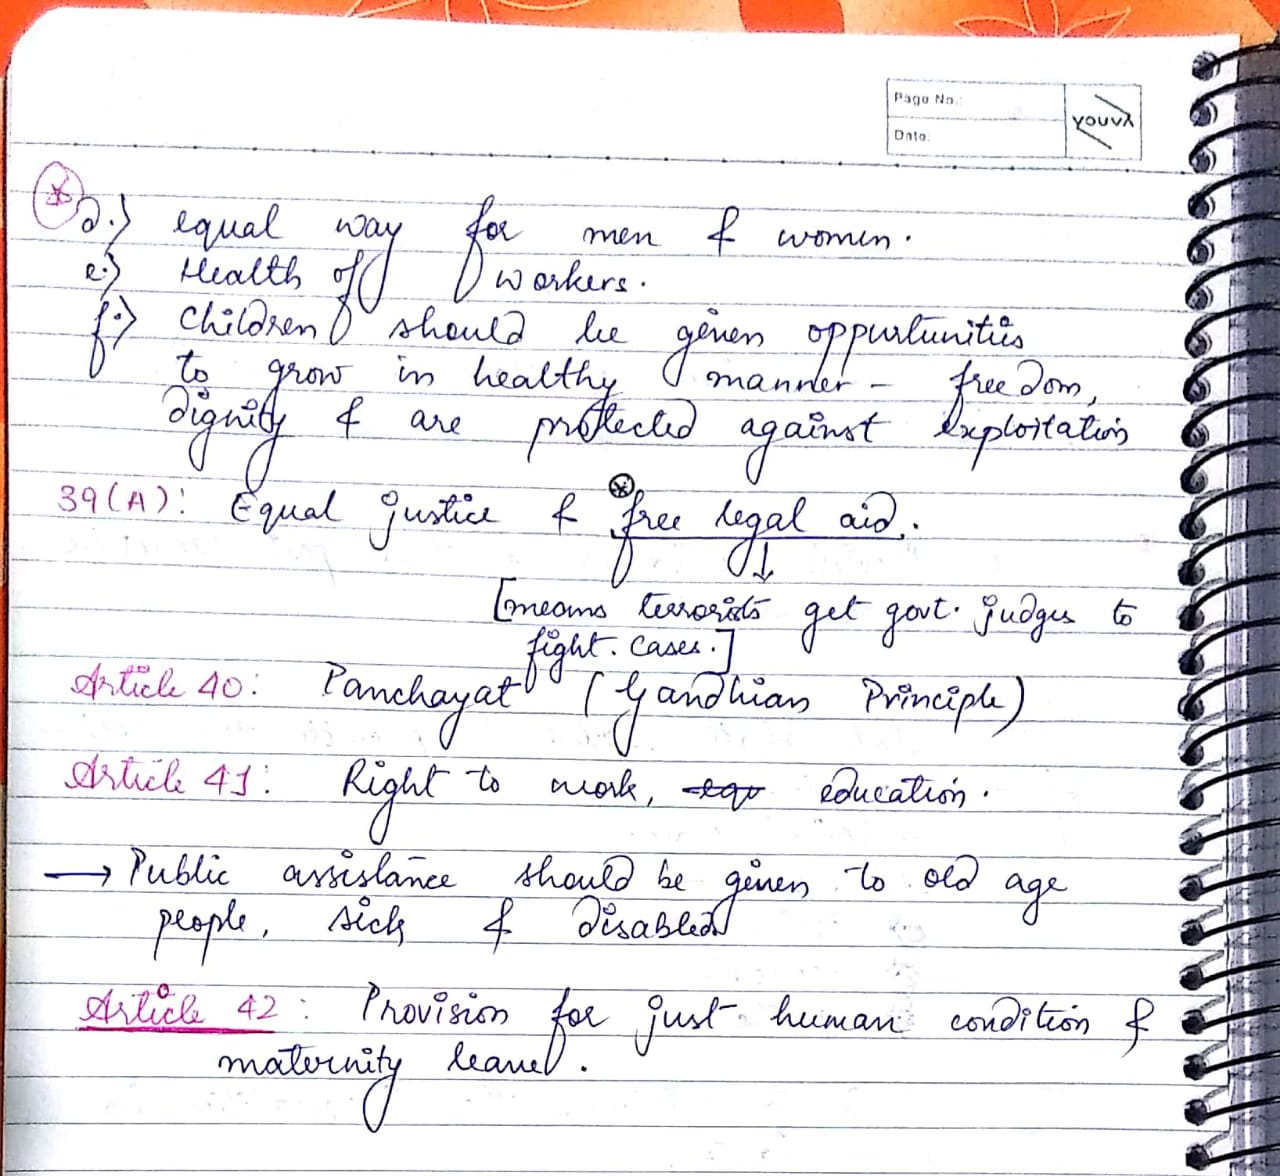 Page No.:
Date:
YOUVA
d.) equal way for men & women.
e.) Health of workers.
f.) Children should be given oppurtunities
to grow in healthy manner - freedom,
dignity & are protected against exploitation
39(A): Equal justice & free legal aid.
[means terrorists get govt. judges to
fight. cases.]
Article 40: Panchayat (Gandhian Principle)
Article 41: Right to work, equ education.
→ Public assistance should be given to old age
people, sick & disabled
Article 42: Provision for just human condition &
maternity leave.